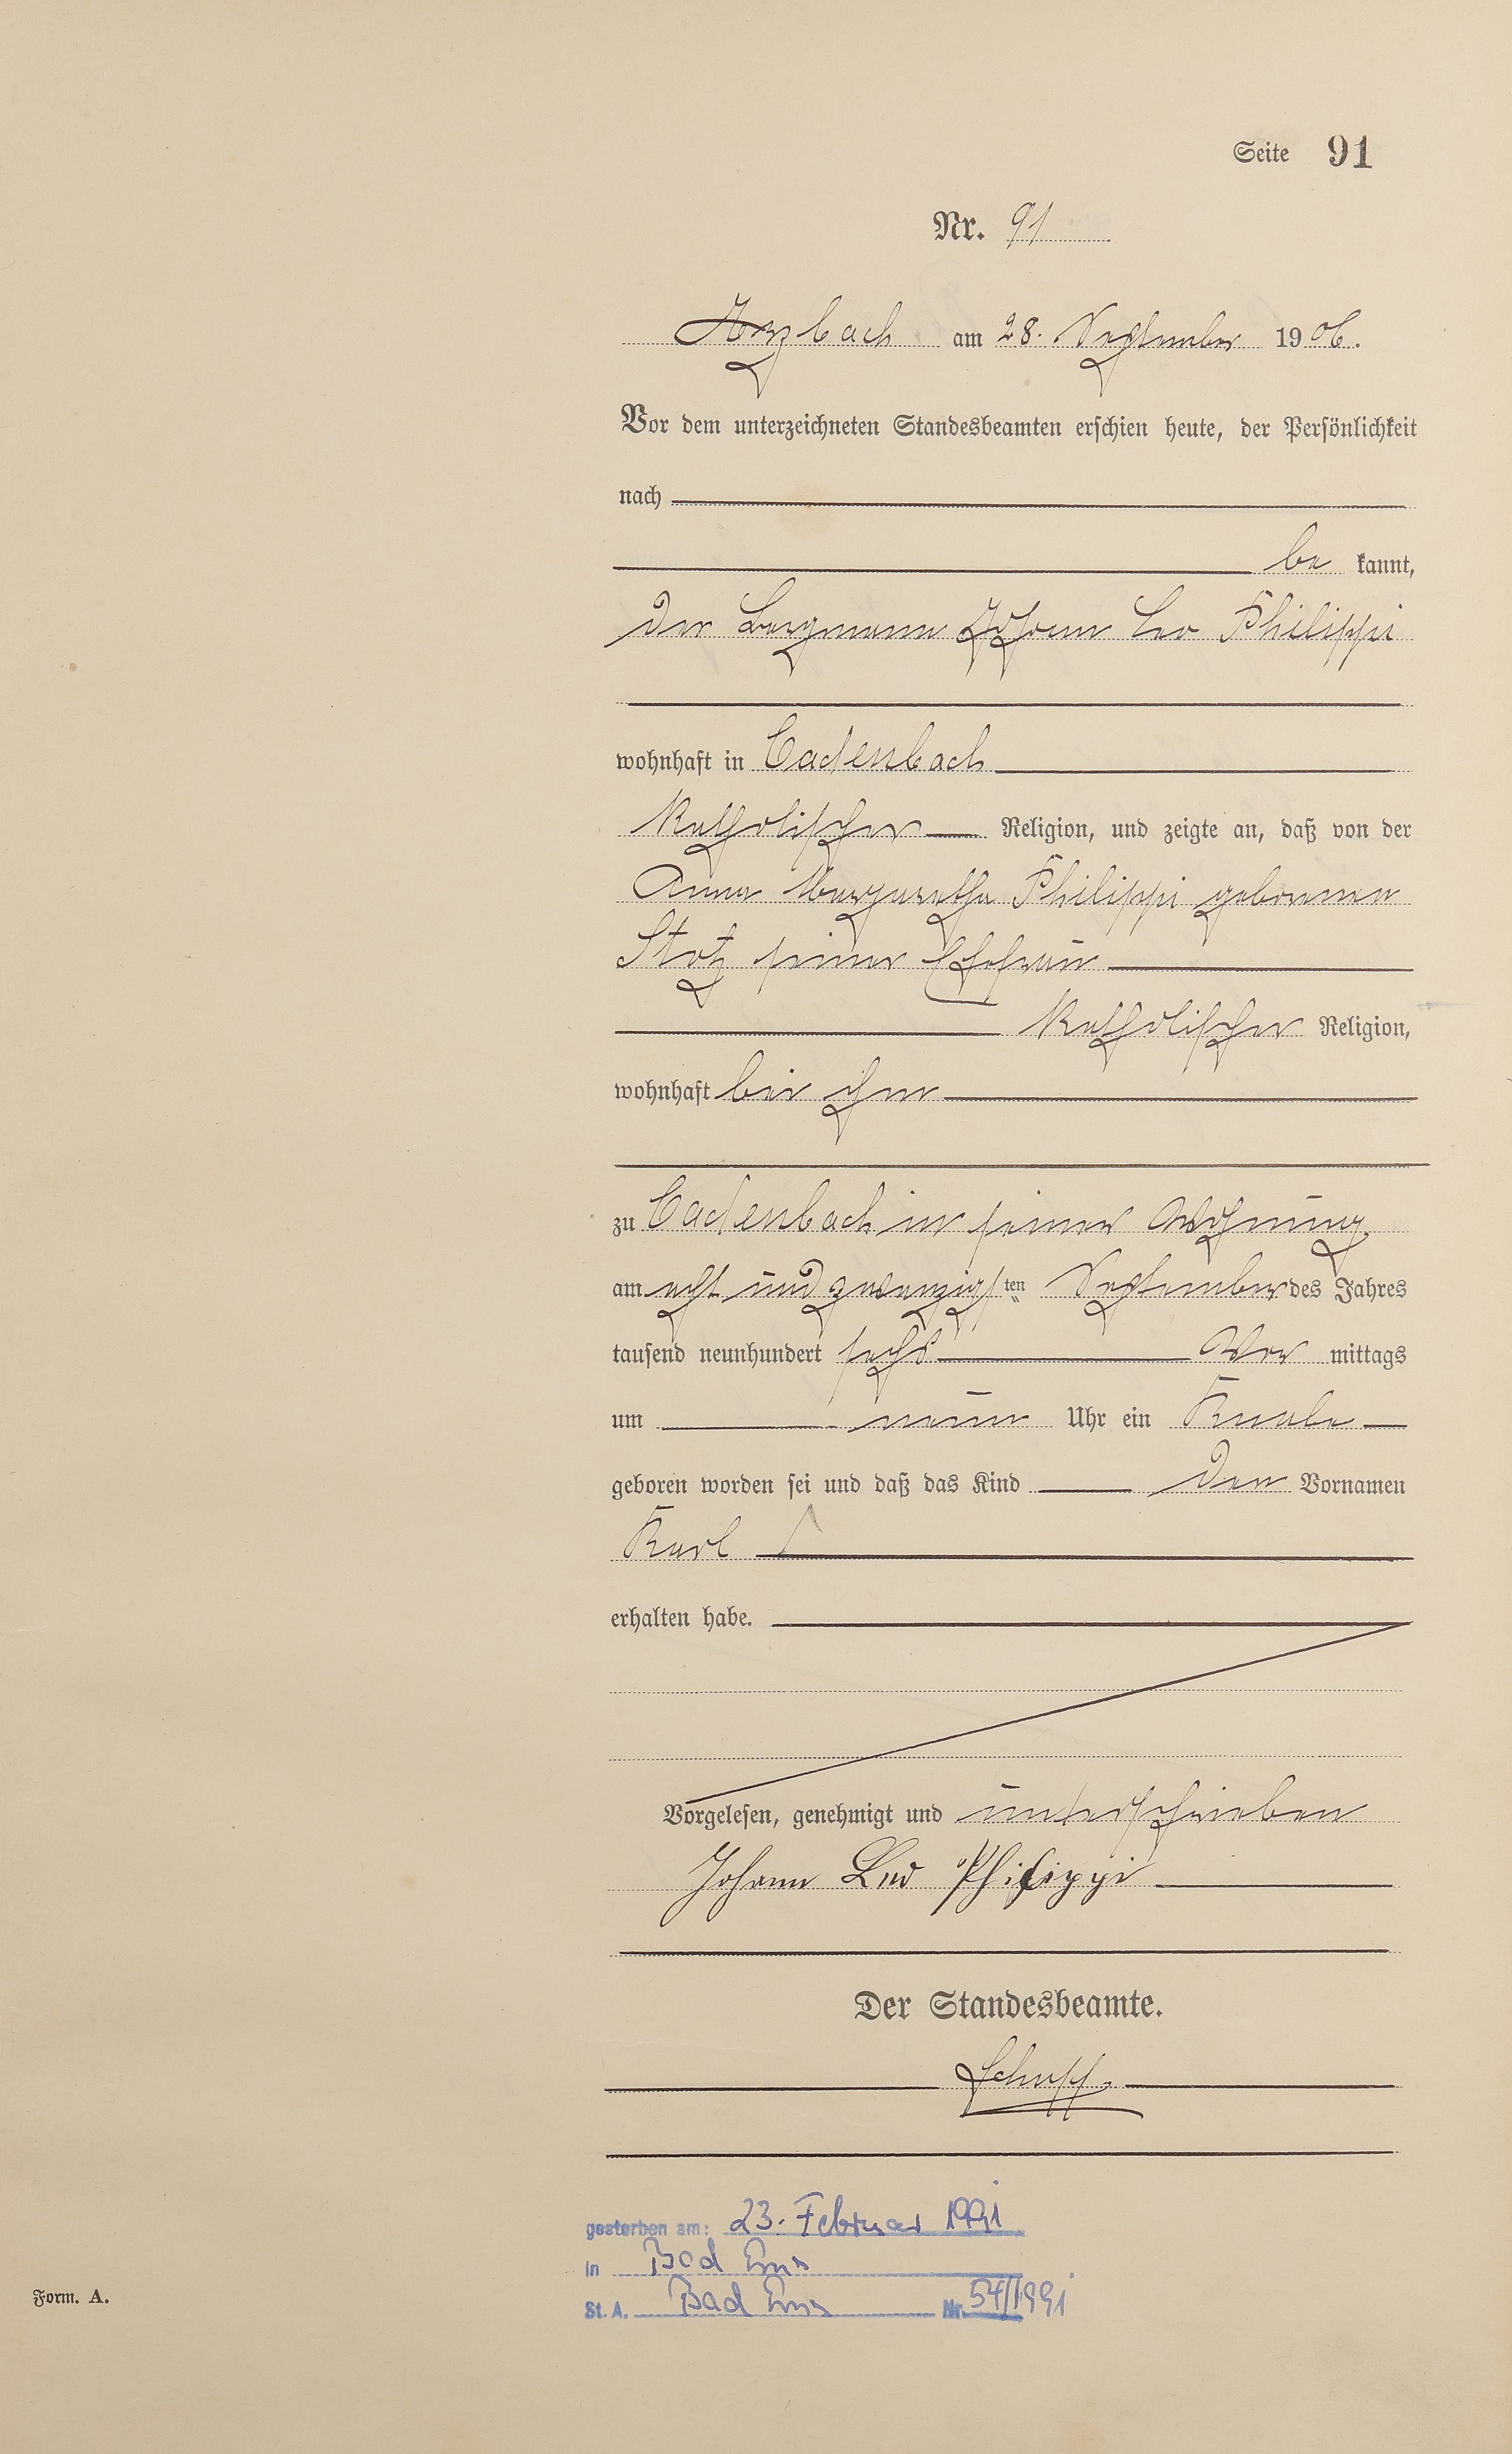 Seite 91
Nr. 91
Arzbach am 28. September 1906.
Vor dem unterzeichneten Standesbeamten erschien heute, der Persönlichkeit
nach
be kannt,
der Bergmann Johann Leo Philippi
wohnhaft in Cadenbach
katholischer Religion, und zeigte an, daß von der
Anna Margaretha Philippi geborenen
Stotz seiner Ehefrau
katholischer Religion,
wohnhaft bei ihm
zu Cadenbach in seiner Wohnung
am acht und zwanzigsten September des Jahres
tausend neunhundert sechs Vor mittags
um neun Uhr ein Knabe
geboren worden sei und daß das Kind den Vornamen
Karl
erhalten habe.
Vorgelesen, genehmigt und unterschrieben
Johann Leo Philippi
Der Standesbeamte.
gestorben am: 23. Februar 1991
in Bad Ems
St. A. Bad Ems Nr. 54/1991
Form. A.